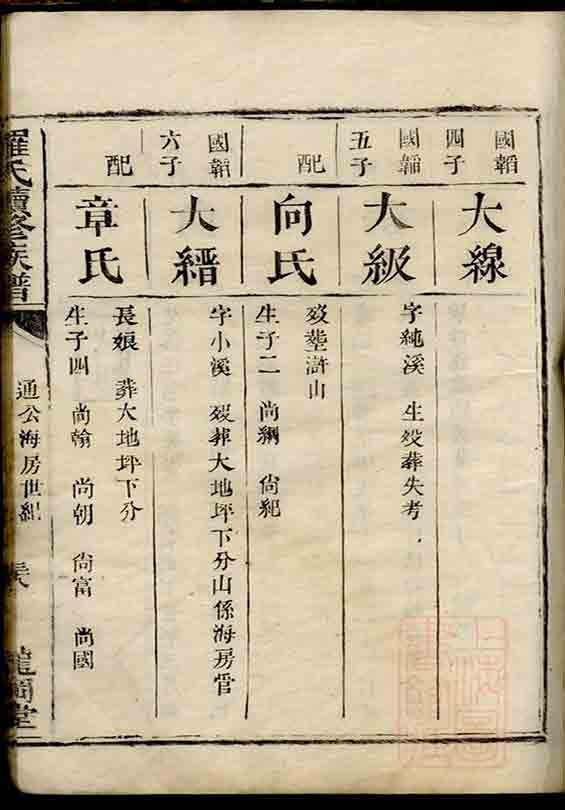 國韜
四子
大線
國韜
五子
大級
字純溪 生歿葬失考
配
向氏
歿塟滸山
生子二 尚綱 尚紀
國韜
六子
大縉
字小溪 歿葬大地坪下分山係海房管
配
章氏
長娘 葬大地坪下分
生子四 尚翰 尚朝 尚富 尚國
羅氏續修族譜
通公海房世紀